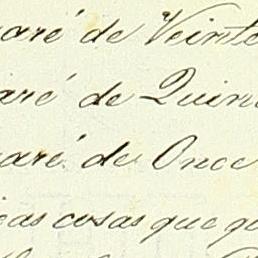 aré de Veinte
aré de Quin
aré de Once
cas cosas que go